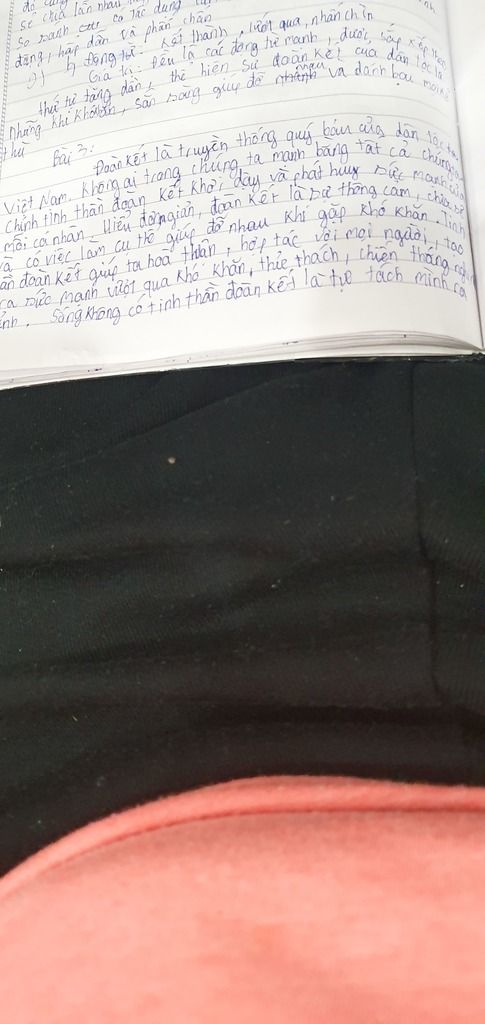 sẻ chia lẫn nhau
So sánh có tác dụng
đăng, hấp dẫn và phấn chấn
b) Động từ: Kết thành, lướt qua, nhấn chìm
Giá trị: Đều là các động từ mạnh, được sắp xếp theo
thứ tự tăng dần, thể hiện sự đoàn kết của dân tộc ta
Những khi khó khăn, sẵn sàng giúp đỡ nhau và đánh bại mọi kẻ
thù
Bài 3:
Đoàn kết là truyền thống quý báu của dân tộc ta
Việt Nam. Không ai trong chúng ta mạnh bằng tất cả chúng ta
chính tinh thần đoàn kết khơi dậy và phát huy sức mạnh của
mỗi cá nhân. Hiểu đơn giản, đoàn kết là sự thông cảm, chia sẻ
và có việc làm cụ thể giúp đỡ nhau khi gặp khó khăn. Tinh
ần đoàn kết giúp ta hoà thân, hợp tác với mọi người, tạo
ra sức mạnh vượt qua khó khăn, thử thách, chiến thắng
ình. Sống không có tinh thần đoàn kết là tự tách mình ra